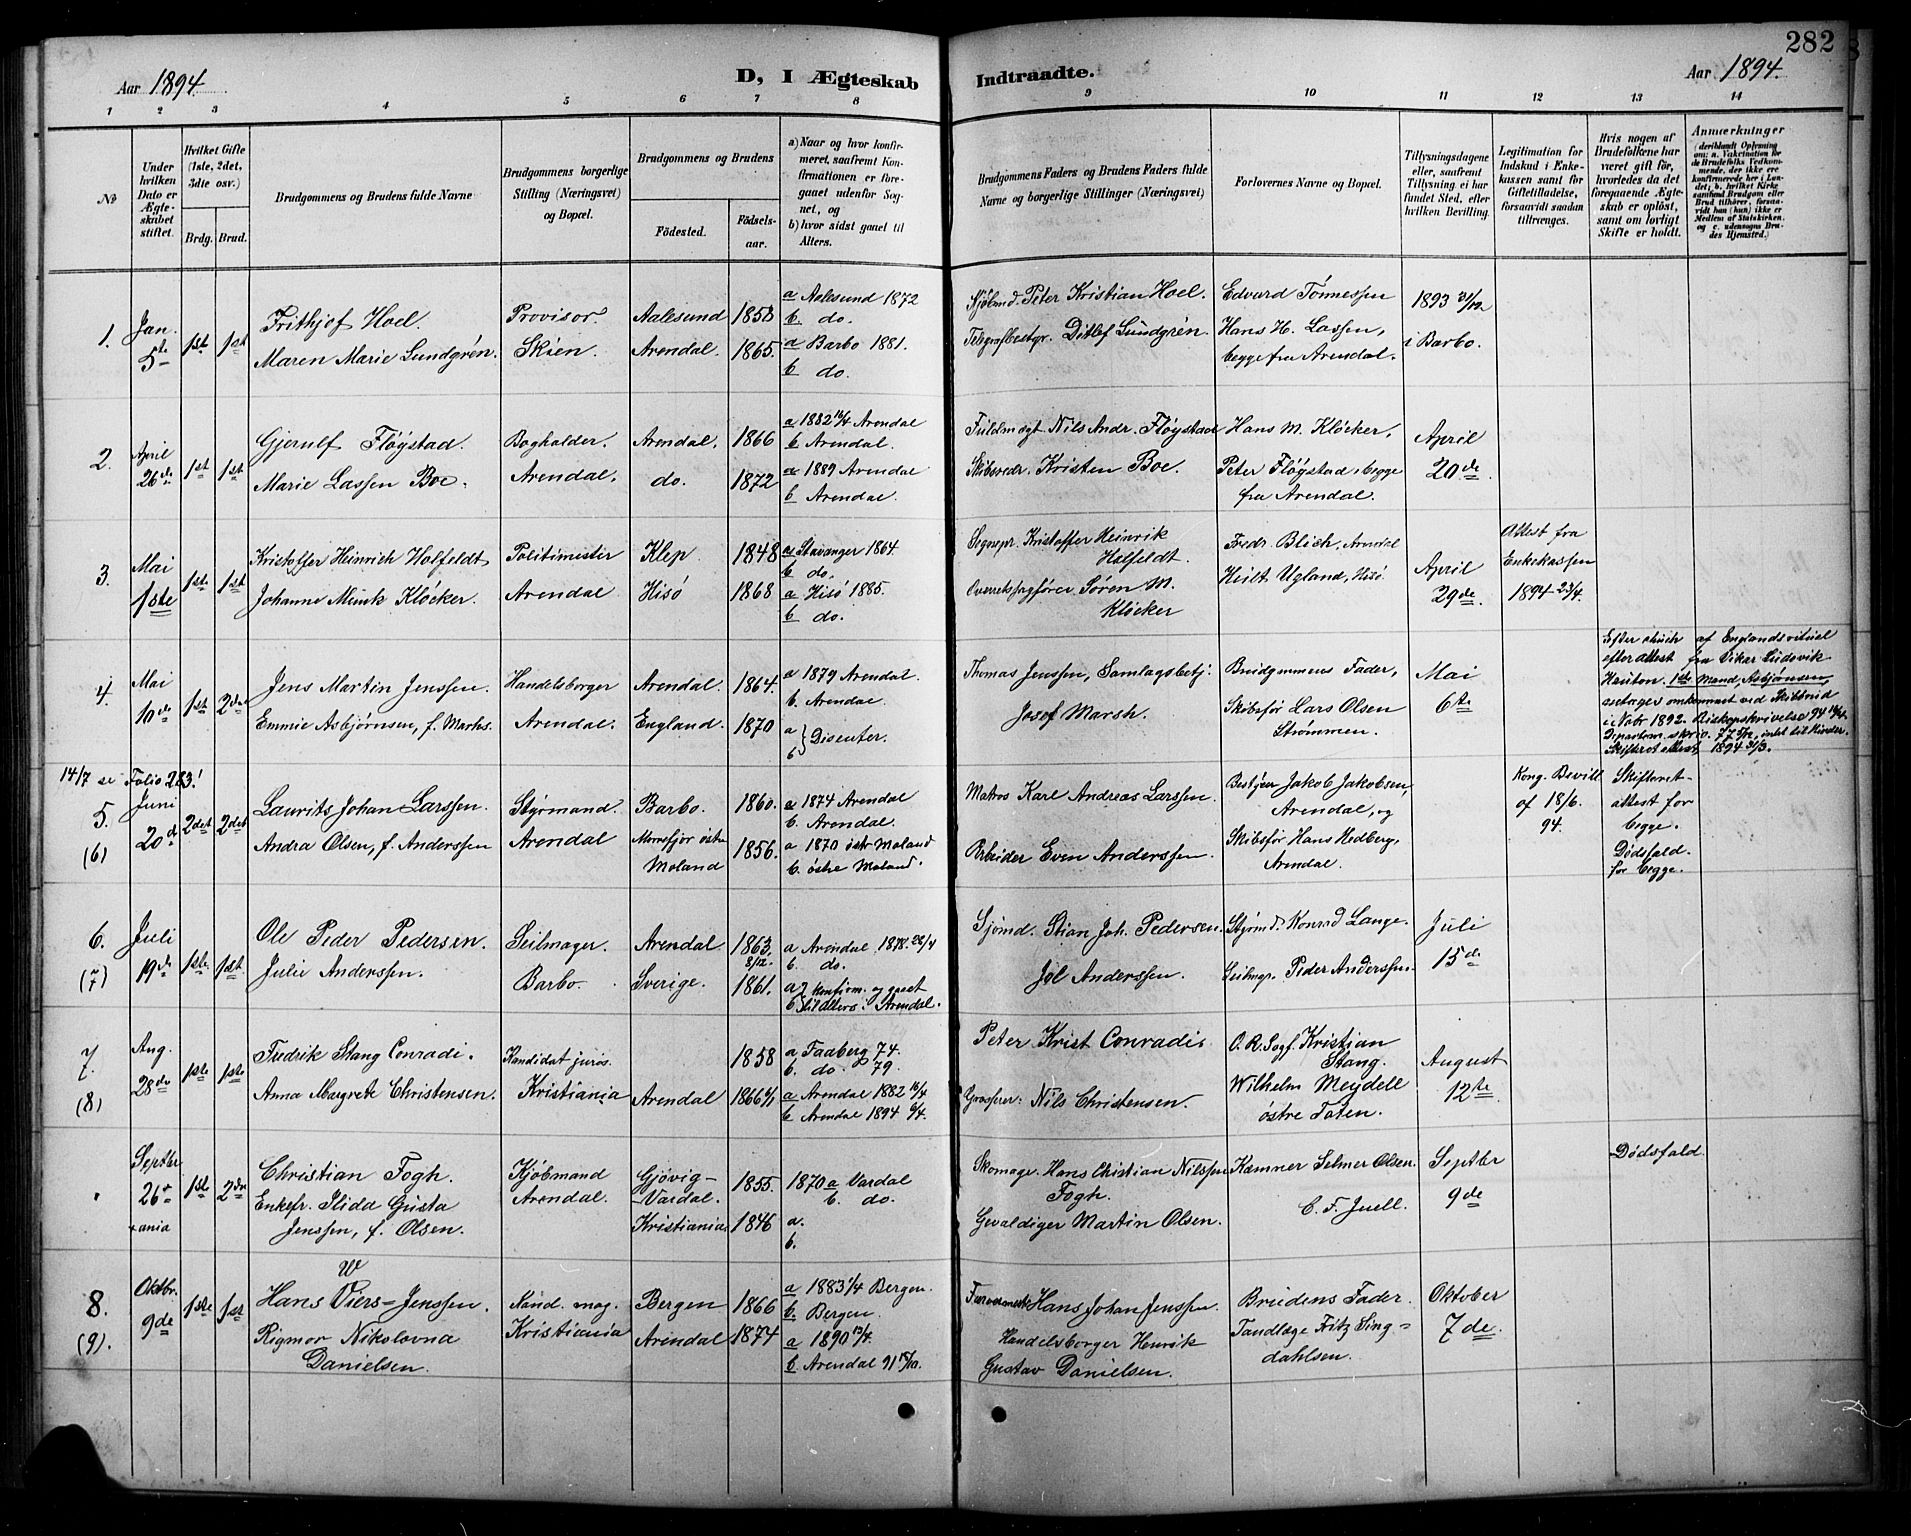 282
Aar 1894.
D, I Ægteskab
Indtraadte.
Aar 1894.
1 2 3 4 5 6 7 8 9 10 11 12 13 14
No
Under hvilken Dato er Ægteskabet stiftet.
Hvilket Gifte (1ste, 2det, 3die osv.)
Brdg. Brud.
Brudgommens og Brudens fulde Navne
Brudgommens borgerlige Stilling (Næringsvei) og Bopæl.
Brudgommens og Brudens
Födested.
Födselsaar.
a) Naar og hvor konfirmeret, saafremt Konfirmationen er foregaaet udenfor Sognet, og
b) hvor sidst gaaet til Alters.
Brudgommens Faders og Brudens Faders fulde Navne og borgerlige Stillinger (Næringsvei)
Forlovernes Navne og Bopæl.
Tillysningsdagene eller, saafremt Tillysning ei har fundet Sted, efter hvilken Bevilling.
Legitimation for Indskud i Enkekassen samt for Giftetilladelse, forsaavidt saadan tiltrænges.
Hvis nogen af Brudefolkene har været gift før, hvorledes da det foregaaende Ægteskab er oplöst, samt om lovligt Skifte er holdt.
Anmærkninger
(deriblandt Oplysning om: a. Vakcination for de Brudefolks Vedkommende, der ikke ere konfirmerede her i Landet; b. hvilket Kirkesamfund Brudgom eller Brud tilhører, forsaavidt han (hun) ikke er Medlem af Statskirken, og c. udensogns Brudes Hjemsted.)
1. Jan. 5te 1ste 1ste
Frithjof Hoel.
Maren Marie Lundgrén.
Provisor.
Skien.
Aalesund 1858
Arendal. 1865.
a Aalesund 1872
b. do.
a Barbo 1881.
b do.
Sjölmd. Peter Kristian Hoel.
Telegrafbestyr. Ditlef Lundgrén.
Edvard Tönnessen
Hans H. Lassen,
begge fra Arendal.
1893 31/12
i Barbo.
2. April 26de 1st 1st
Gjerulf Fløystad.
Marie Lassen Boe.
Bogholder.
Arendal.
Arendal. 1866
do. 1872
a 1882 16/4 Arendal
b Arendal.
a 1889 Arendal
b Arendal.
Fuldmægt Nils Andr. Fløystad
Skibsredr. Kristen Boe.
Hans M. Kløcker,
Peter Fløystad, begge
fra Arendal.
April
20de.
3. Mai 1ste 1ste 1ste
Kristoffer Heinrich Holfeldt
Johanne Munk Klöcker.
Politimester
Arendal
Klep 1848
Hisö 1868
a Stavanger 1864.
b do.
a Hisö 1885.
b do.
Sognepr. Kristoffer Heinrik
Holfeldt.
Overretssagfører Søren M.
Kløcker
Fredr. Blich, Arendal
Ugland, Hisö.
April
29de.
Attest fra
Enkekassen
1894 23/4.
4. Mai 10de 1ste 2den
Jens Martin Jenssen.
Emmie Asbjørnsen, f. Marhs.
Handelsborger
Arendal.
Arendal. 1864.
England. 1870
a 1879 Arendal.
b. Arendal.
a b } Disenter.
Thomas Jenssen, Samlagsbetj.
Josef Marsh.
Brudgommens Fader,
Skibsför Lars Olsen
Strømmen.
Mai
6te
Efter af Englands ritual
efter attest fra Vikar Ludovik
1ste Mand, Asbjørnsen,
antages omkommet ved Skibbrud
i Nobr 1892. Biskopskrivelse 94 14/4.
Departem. skriv. 77 intet til Hinder.
Skifteret attest 1894 31/3.
14/7 se Folio 283!
5. (6) Juni 20d 2det 2det
Laurits Johan Larssen.
Andra Olsen, f. Anderssen
Styrmand.
Arendal
Barbo. 1860.
Morrefjær östre
Moland 1856.
a 1874 Arendal
b. Arendal.
a 1870 östr Moland
b. östre Moland.
Matros Karl Andreas Larssen.
Arbeider Even Anderssen.
Bestyrer Jakob Jakobsen,
Arendal, og
Skibsför Hans Hedberg,
Arendal.
Kong. Bevill.
af 18/6.
94.
Skifteret-
attest for
begge.
Dödsfald.
for begge.
6. (7) Juli 19de 1ste. 1ste
Ole Peder Pedersen.
Julie Anderssen.
Seilmager.
Barbo.
Arendal 1863. 8/12.
Sverige. 1861.
a Arendal 1878. 28/4
b. do.
a b konfirm. og gaaet
til Alters i Arendal.
Sjömd. Stian Joh. Pedersen.
Jöl Anderssen.
Styrmd. Konrad Lange.
Seilmgr. Peder Anderssen.
Juli
15de
7. (8) Aug. 28de 1ste 1ste
Fredrik Stang Conradi.
Anna Margrete Christensen.
Kandidat juris.
Kristiania
1858
Arendal 1866 6/1
a Faaberg 74.
b. do. 79.
a Arendal 1882 16/4
b Arendal 1894 6/4.
Peter Krist Conradi.
Grosserer: Nils Christensen.
O. R. Sagf. Kristian
Stang.
Wilhelm Meydell
östre Toten.
August
12te
Septbr 26te 1ste 2den
Christian Fogh.
Enkefr. Ilida Gusta
Jenssen, f. Olsen.
Kjöbmand
Arendal.
Gjövig-
Vardal. 1855.
Kristiania 1846
1870 a Vardal
b. do.
a.
b.
Skomage. Hans Christian Nilssen
Fogh.
Gevaldiger Martin Olsen.
Kæmner Selmer Olsen.
C. F. Juell.
Septbr
9de
Dödsfald.
8. (9). Oktbr. 9de 1ste 1st
W
Hans Viers-Jenssen.
Rigmor Nikolovna
Danielsen.
Kand. mag.
Kristiania
Bergen 1866
Arendal 1874
a 1883 1/4 Bergen.
b. Bergen.
a 1890 13/4.
b Arendal 91 15/10.
Farvermestr Hans Johan Jenssen
Handelsborger Henrik
Gustav Danielsen.
Brudens Fader.
Tandlæge Fritz Sing-
dahlsen.
Oktober
7de.